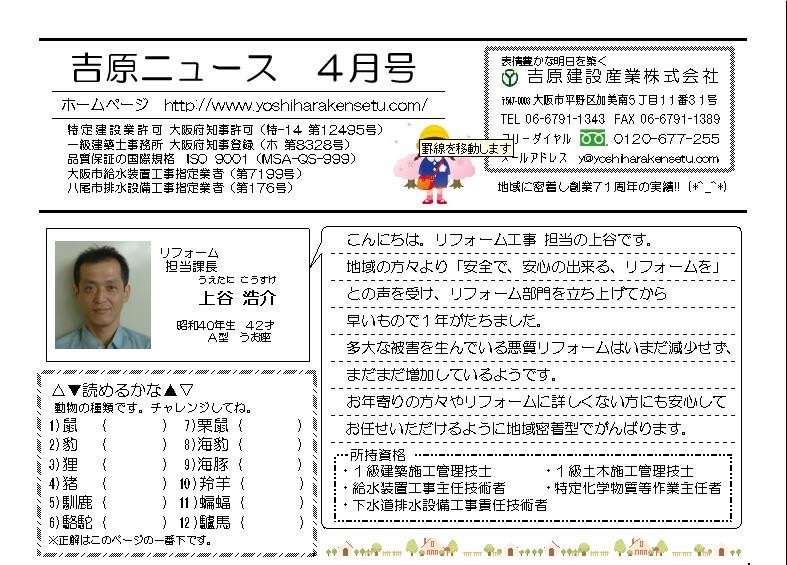 吉原ニュース　４月号
ホームページ　http://www.yoshiharakensetu.com/
特定建設業許可 大阪府知事許可（特-14 第12495号）
一級建築士事務所 大阪府知事登録（ホ 第8328号）
品質保証の国際規格　ISO 9001（MSA-QS-999）
大阪市給水装置工事指定業者（第7199号）
八尾市排水設備工事指定業者（第176号）
罫線を移動します
表情豊かな明日を築く
吉原建設産業株式会社
〒547-0003 大阪市平野区加美南５丁目１１番３１号
TEL 06-6791-1343　FAX 06-6791-1389
フリーダイヤル　0120-677-255
メールアドレス　y@yoshiharakensetu.com
地域に密着し創業７１周年の実績!!（*^_^*）
リフォーム
担当課長
うえたに こうすけ
上谷 浩介
昭和40年生　４２才
Ａ型　うお座
こんにちは。リフォーム工事 担当の上谷です。
地域の方々より「安全で、安心の出来る、リフォームを」
との声を受け、リフォーム部門を立ち上げてから
早いもので１年がたちました。
多大な被害を生んでいる悪質リフォームはいまだ減少せず、
まだまだ増加しているようです。
お年寄りの方々やリフォームに詳しくない方にも安心して
お任せいただけるように地域密着型でがんばります。
所持資格
・１級建築施工管理技士　・１級土木施工管理技士
・給水装置工事主任技術者　・特定化学物質等作業主任者
・下水道排水設備工事責任技術者
△▼読めるかな▲▽
動物の種類です。チャレンジしてね。
1)鼠　（　　　）　7)栗鼠（　　　）
2)豹　（　　　）　8)海豹（　　　）
3)狸　（　　　）　9)海豚（　　　）
4)猪　（　　　）　10)羚羊（　　　）
5)馴鹿（　　　）　11)蝙蝠（　　　）
6)駱駝（　　　）　12)驢馬（　　　）
※正解はこのページの一番下です。